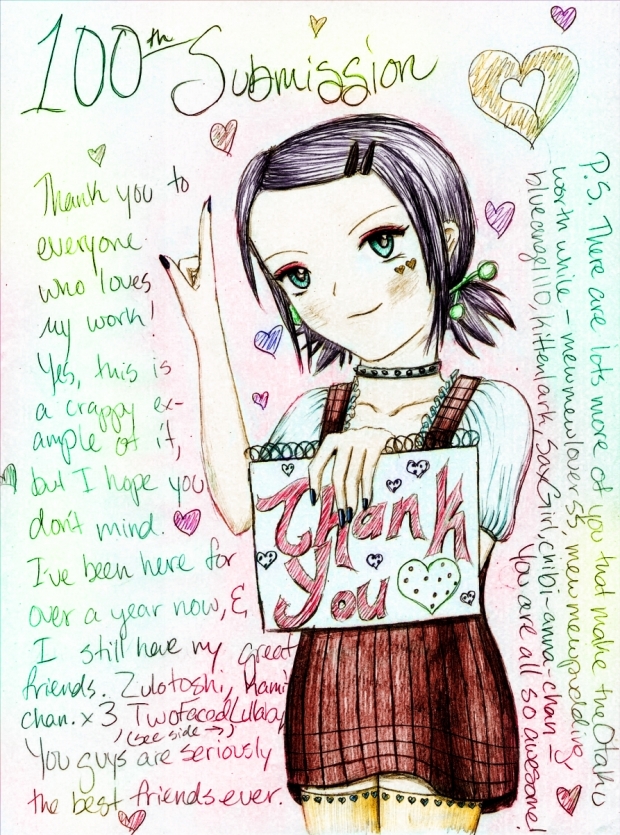 100th Submission
Thank you to
everyone
who loves
my work!
Yes, this is
a crappy ex-
ample of it,
but I hope you
don't mind.
I've been here for
over a year now, &
I still have my great
friends. Zulotoshi, Kami
chan. x3 TwofacedLullaby
(see side →)
You guys are seriously
the best friends ever.
Thank
You
P.S. There are lots more of you that make theOtaku
worth while - mewmewlover55, mewmewpudding,
blueangel110, kittenlark, SaxGirl, chibi-anna-chan
You are all so awesome!